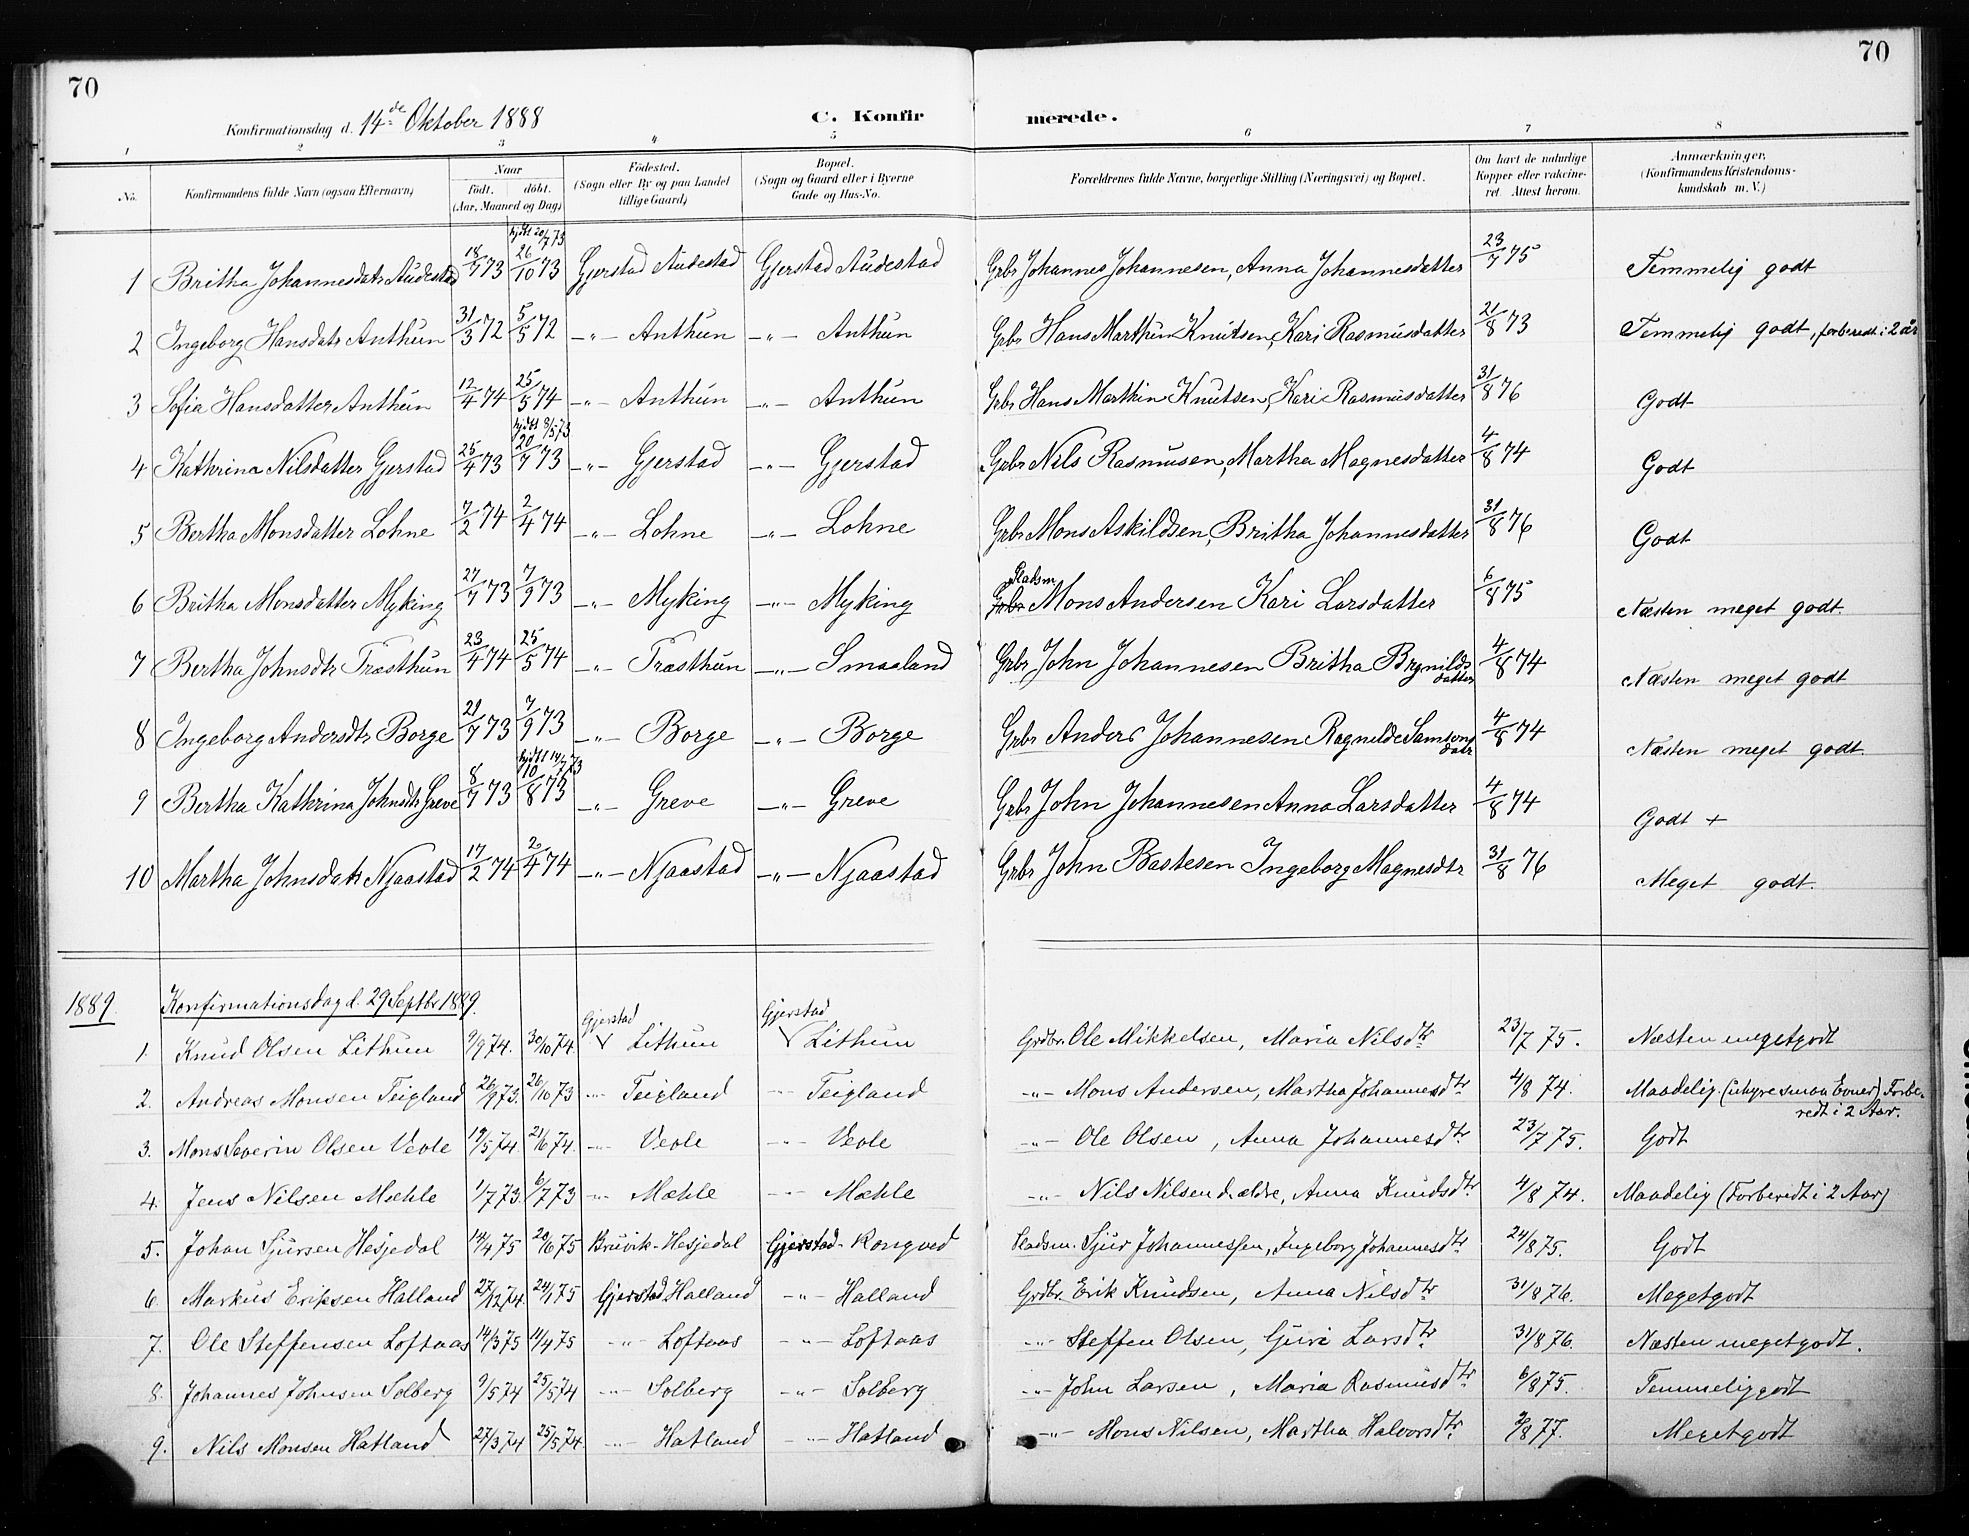 70
70
Konfirmationsdag d. 14de Oktober 1888
C. Konfir merede.
1 2 3 4 5 6 7 8
No. Konfirmandens fulde Navn (ogsaa Efternavn) Naar födt. döbt. (Aar, Maaned og Dag) Födested. (Sogn eller By og paa Landet tillige Gaard) Bopæl. (Sogn og Gaard eller i Byerne Gade og Hus-No. Forældrenes fulde Navne, borgerlige Stilling (Næringsvei) og Bopæl. Om havt de naturlige Kopper eller vakcineret. Attest herom. Anmærkninger, (Konfirmandens Kristendomskundskab m. V.)
1 Britha Johannesdatr Audestad 18/7 73 hjdt 20/7 73 26/10 73 Gjerstad Audestad Gjerstad Audestad Grbr Johannes Johannesen, Anna Johannesdatter 23/7 75 Temmelig godt
2 Ingeborg Hansdatr Anthun 31/3 72 5/5 72 -"- Anthun -"- Anthun Grbr Hans Marthin Knutsen, Kari Rasmusdatter 21/8 73 Temmelig godt, forberedt i 2 år
3 Sofia Hansdatter Anthun 12/4 74 25/5 74 -"- Anthun -"- Anthun Grbr Hans Marthin Knutsen, Kari Rasmusdatter 31/8 76 Godt
4 Kathrina Nilsdatter Gjerstad 25/4 73 hjdt 8/5 73 20/7 73 -"- Gjerstad -"- Gjerstad Grbr Nils Rasmusen, Martha Magnesdatter 4/8 74 Godt
5 Bertha Monsdatter Lohne 7/2 74 2/4 74 -"- Lohne -"- Lohne Grbr Mons Askildsen, Britha Johannesdatter 31/8 76 Godt
6 Britha Monsdatter Myking 27/7 73 7/9 73 -"- Myking -"- Myking Grbr Pladsm Mons Andersen Kari Larsdatter 6/8 75 Næsten meget godt.
7 Bertha Johnsdtr Træsthun 23/4 74 25/5 74 -"- Træsthun -"- Smaaland Grbr John Johannesen Britha Brynildsdatter 4/8 74 Næsten meget godt
8 Ingeborg Andersdtr Borge 21/7 73 7/9 73 -"- Borge -"- Borge Grbr Anders Johannesen Ragnilde Samsonsdatr 4/8 74 Næsten meget godt
9 Bertha Kathrina Johnsdtr Greve 8/7 73 hjdt 14/7 73 10/8 73 -"- Greve -"- Greve Grbr John Johannesen Anna Larsdatter 4/8 74 Godt +
10 Martha Johnsdatr Njaastad 17/2 74 2/4 74 -"- Njaastad -"- Njaastad Grbr John Bastesen Ingeborg Magnesdtr 31/8 76 Meget godt.
1889. Konfirmationsdag d. 29 Septbr 1889.
1. Knud Olsen Lithun 9/9 74. 30/10 74. Gjerstad Lithun Gjerstad Lithun Grdbr. Ole Mikkelsen, Maria Nilsdtr 23/7 75. Næsten megetgodt
2. Andreas Monsen Teigland 26/9 73. 26/10 73 -"- Teigland -"- Teigland -"- Mons Andersen, Martha Johannesdtr 4/8 74. Maadelig. (uhyre smaa Evner) Forberedt i 2 Aar.
3. Mons Severin Olsen Veole 19/5 74. 21/6 74. -"- Veole -"- Veole -"- Ole Olsen, Anna Johannesdtr 23/7 75. Godt
4. Jens Nilsen Mæhle 1/7 73. 6/7 73 -"- Mæhle -"- Mæhle -"- Nils Nilsen d. ældre, Anna Knudsdtr 4/8 74. Maadelig (Forberedt i 2 Aar)
5. Johan Sjursen Hesjedal 14/4 75 20/6 75 Bruvik-Hesjedal Gjerstad-Rongved Pladsm. Sjur Johannessen, Ingeborg Johannesdtr 24/8 75. Godt
6. Markus Eriksen Halland 27/12 74. 24/1 75 Gjerstad Halland -"- Halland Grdbr. Erik Knudsen, Anna Nilsdtr 31/8 76. Megetgodt
7. Ole Steffensen Loftaas 14/3 75 11/4 75 -"- Loftaas -"- Loftaas -"- Steffen Olsen, Guri Larsdtr. 31/8 76. Næsten megetgodt.
8. Johannes Johnsen Solberg 9/5 74 25/5 74 -"- Solberg -"- Solberg -"- John Larsen, Maria Rasmusdtr 6/8 75. Temmeliggodt
9. Nils Monsen Hatland 27/3 74 25/5 74. -"- Hatland -"- Hatland -"- Mons Nilsen, Martha Halvorsdtr. 2/8 77. Megetgodt